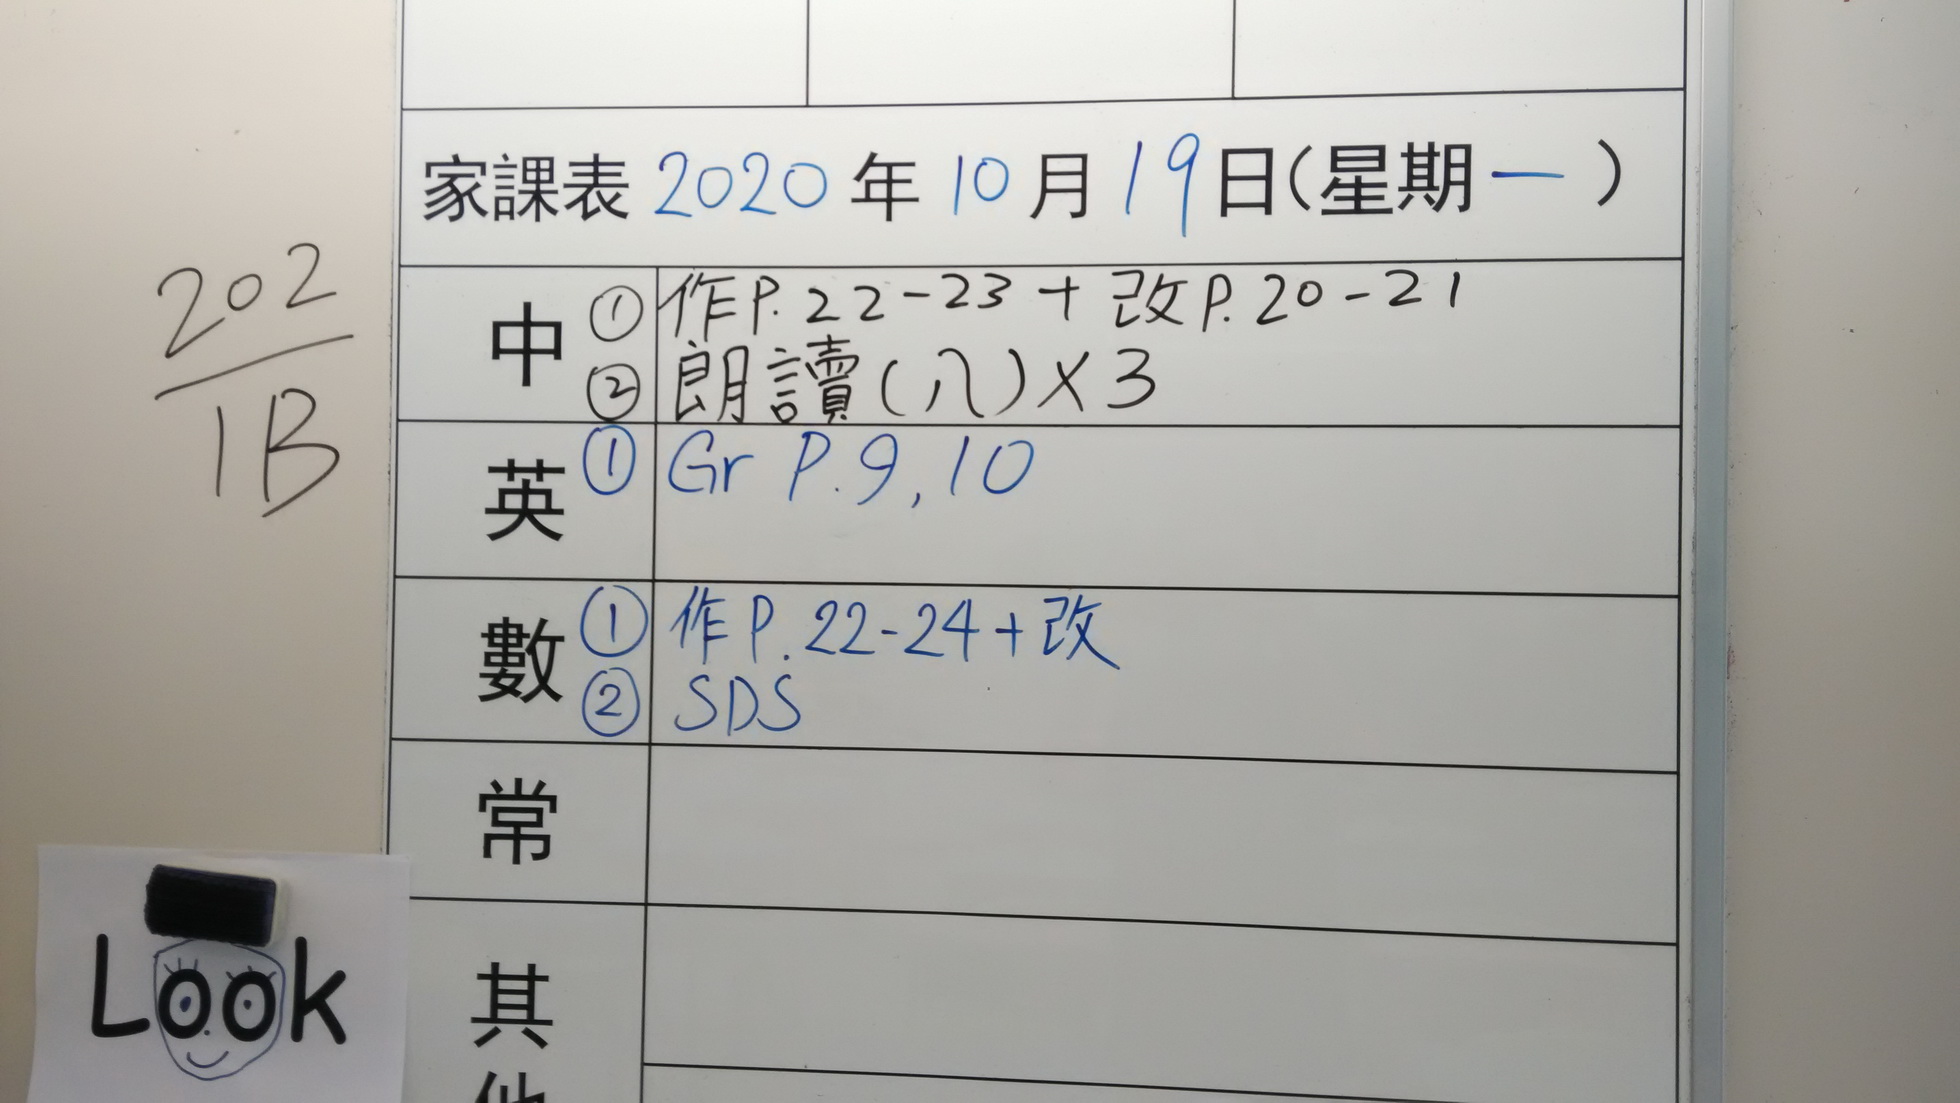 家課表 2020 年 10 月 19 日(星期一)
202
1B
中 ① 作P.22-23 + 改P.20-21
② 朗讀(八)X3
英 ① Gr P.9,10
數 ① 作P.22-24+改
② SDS
常
其
他
Look